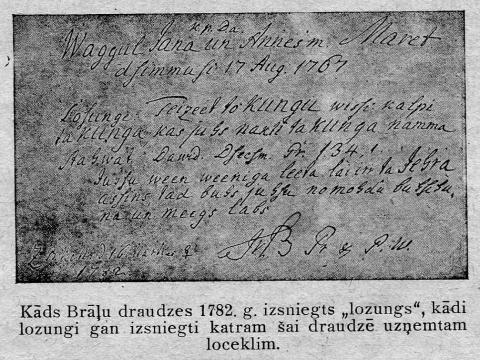 k.p. Da
Waggul Jana un Annes m. Maret
dsimmusi 17 Aug. 1767
Losungs. Teizeet to KUNGU wissi kalpi
ta KUNGA kas juhs nakti ta KUNGA namma
stahwat. Dawid. Dseesm. Pr. 134, 1.
ween weeniga leeta lai ir ta Jehra
assins tad buhs juhsu nomohda
na un meegs labs
1782
Pr. & P. W.
Kāds Brāļu draudzes 1782. g. izsniegts „lozungs“, kādi
lozungi gan izsniegti katram šai draudzē uzņemtam
loceklim.